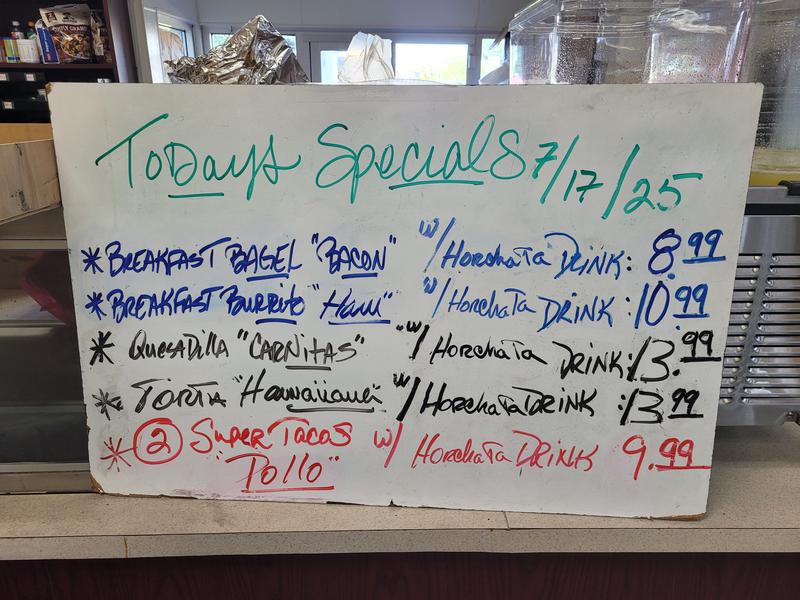 Todays Specials 7/17/25
* BREAKFAST BAGEL "BACON" w/ Horchata DRINK: 8.99
* BREAKFAST Burrito "Ham" w/ Horchata DRINK: 10.99
* Quesadilla "CARNITAS" w/ Horchata DRINK: 13.99
* TORTA "Hawaiiana" w/ Horchata DRINK: 13.99
* 2 Super Tacos w/ Horchata DRINK 9.99
"Pollo"